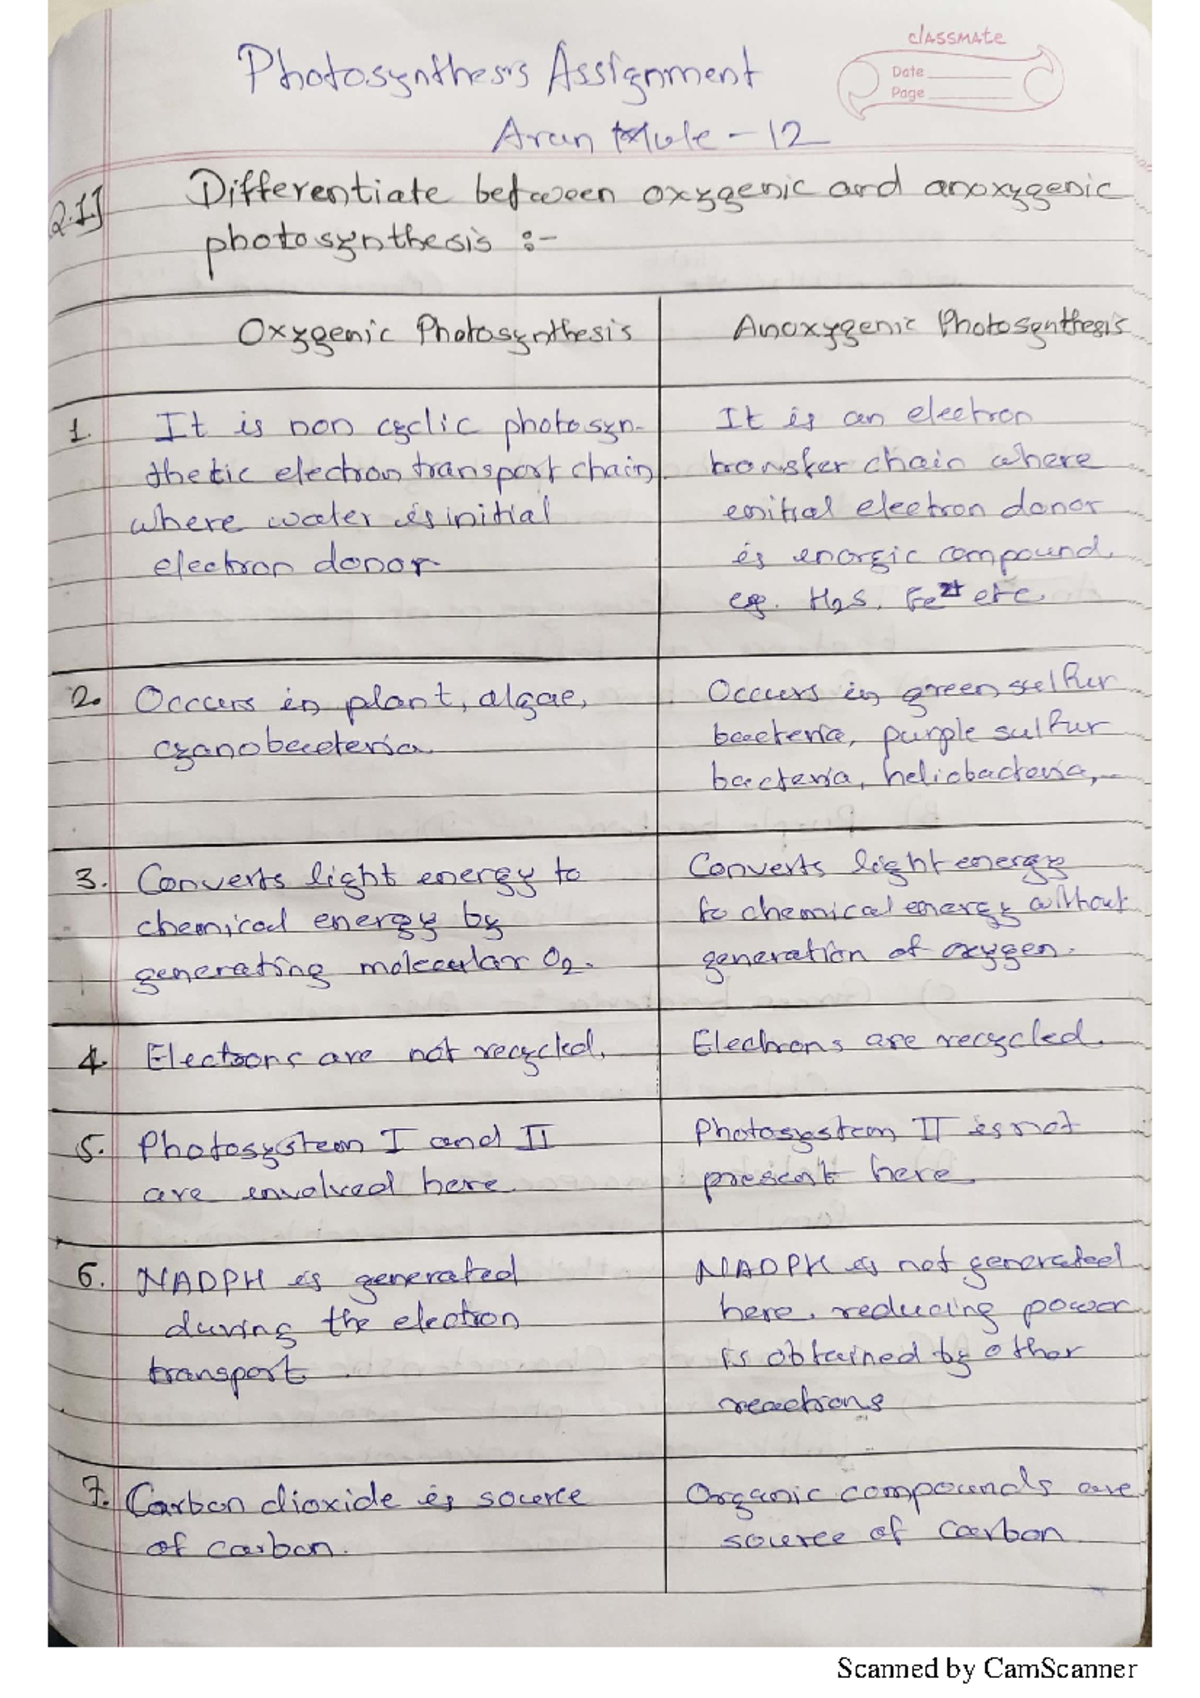 classmate
Date
Page
Photosynthesis Assignment
Arun Mule - 12
Q.1] Differentiate between oxygenic and anoxygenic
photosynthesis :-
Oxygenic Photosynthesis
Anoxygenic Photosynthesis
1. It is non cyclic photosyn-
thetic electron transport chain,
where water is initial
electron donor
It is an electron
transfer chain where
enitial electron donor
is enorgic compound.
eg. H2S, Fe2+ etc.
2. Occurs in plant, algae,
cyanobacteria.
Occurs in green sulfur
bacteria, purple sulfur
bacteria, heliobacteria,
3. Converts light energy to
chemical energy by
generating molecular O2.
Converts light energy
to chemical energy without
generation of oxygen.
4. Electrons are not recycled.
Electrons are recycled.
5. Photosystem I and II
are involved here.
Photosystem II is not
present here.
6. NADPH is generated
during the electron
transport.
NADPH is not generated
here, reducing power
is obtained by other
reactions
7. Carbon dioxide is source
of carbon.
Organic compounds are
source of carbon
Scanned by CamScanner